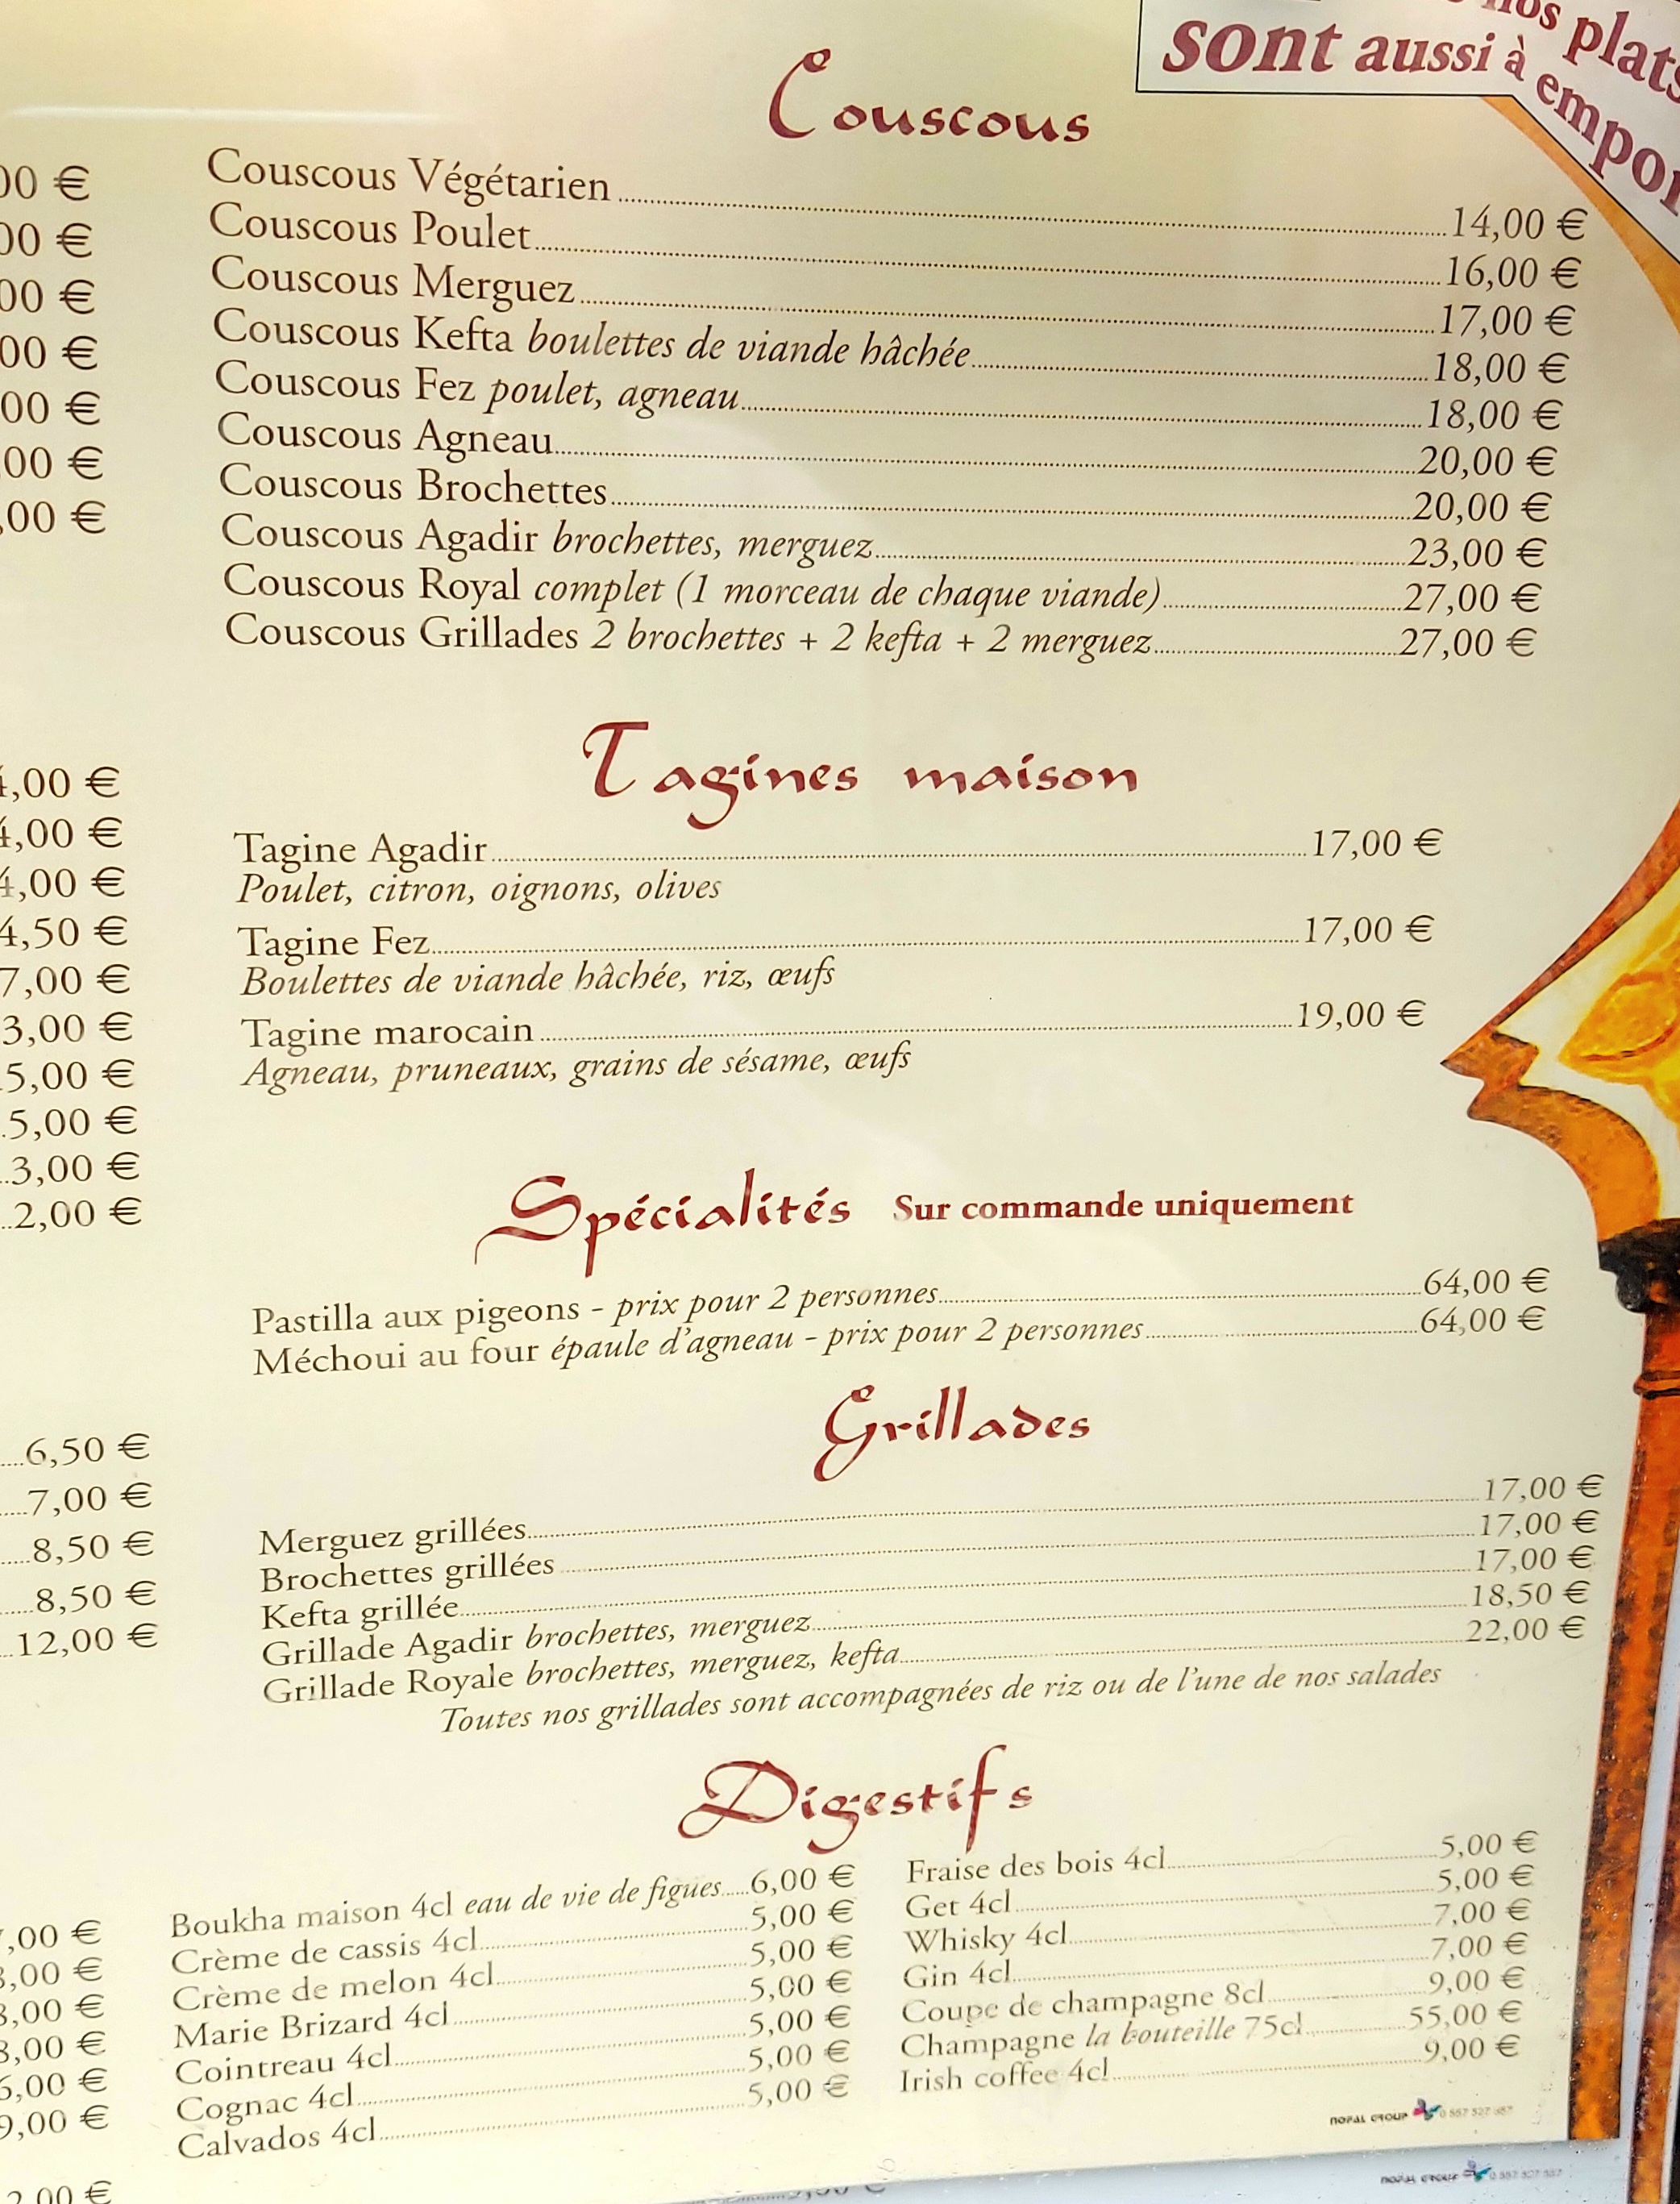 nos plats
sont aussi à
Couscous
Couscous Végétarien 14,00 €
Couscous Poulet 16,00 €
Couscous Merguez 17,00 €
Couscous Kefta boulettes de viande hâchée 18,00 €
Couscous Fez poulet, agneau 18,00 €
Couscous Agneau 20,00 €
Couscous Brochettes 20,00 €
Couscous Agadir brochettes, merguez 23,00 €
Couscous Royal complet (1 morceau de chaque viande) 27,00 €
Couscous Grillades 2 brochettes + 2 kefta + 2 merguez 27,00 €
Tagines maison
Tagine Agadir 17,00 €
Poulet, citron, oignons, olives
Tagine Fez 17,00 €
Boulettes de viande hâchée, riz, œufs
Tagine marocain 19,00 €
Agneau, pruneaux, grains de sésame, œufs
Spécialités Sur commande uniquement
Pastilla aux pigeons - prix pour 2 personnes 64,00 €
Méchoui au four épaule d'agneau - prix pour 2 personnes 64,00 €
Grillades
Merguez grillées 17,00 €
Brochettes grillées 17,00 €
Kefta grillée 17,00 €
Grillade Agadir brochettes, merguez 18,50 €
Grillade Royale brochettes, merguez, kefta 22,00 €
Toutes nos grillades sont accompagnées de riz ou de l'une de nos salades
6,50 €
7,00 €
8,50 €
8,50 €
12,00 €
Digestifs
Boukha maison 4cl eau de vie de figues 6,00 €
Crème de cassis 4cl 5,00 €
Crème de melon 4cl 5,00 €
Marie Brizard 4cl 5,00 €
Cointreau 4cl 5,00 €
Cognac 4cl 5,00 €
Calvados 4cl 5,00 €
Fraise des bois 4cl 5,00 €
Get 4cl 5,00 €
Whisky 4cl 7,00 €
Gin 4cl 7,00 €
Coupe de champagne 8cl 9,00 €
Champagne la bouteille 75cl 55,00 €
Irish coffee 4cl 9,00 €